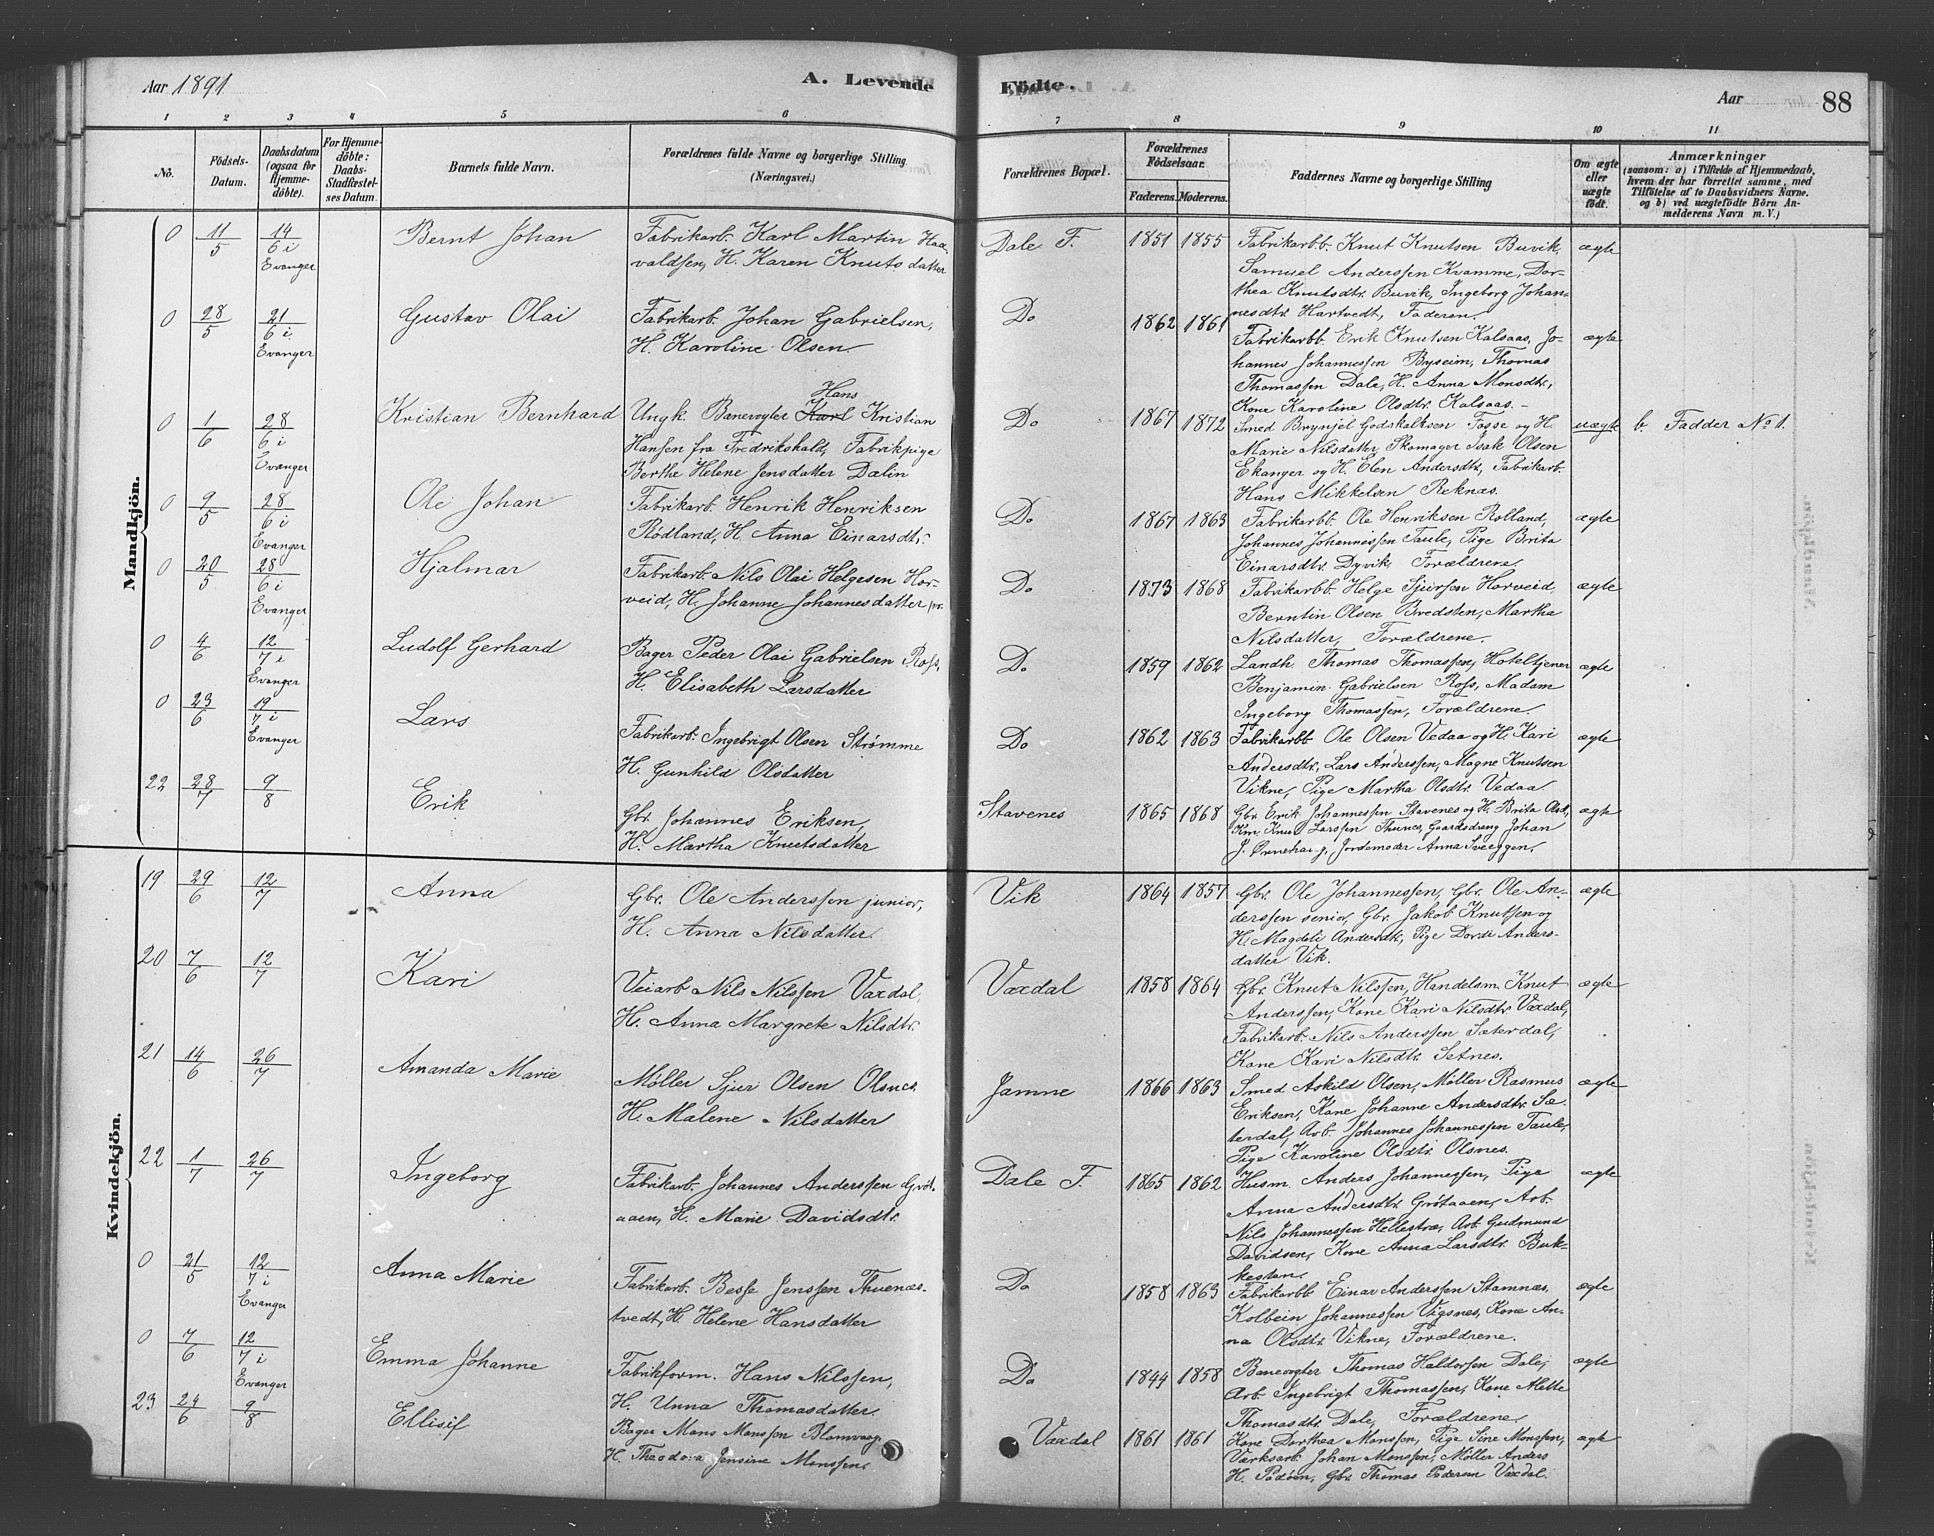 Aar 1891
A. Levende
Födte.
Aar
88
1 2 3 4 5 6 7 8 9 10 11
No.
Födsels-Datum.
Daabsdatum (ogsaa for Hjemme-döbte).
For Hjemme-döbte: Daabs-Stadfæstel-ses Datum.
Barnets fulde Navn.
Forældrenes fulde Navne og borgerlige Stilling (Næringsvei.)
Forældrenes Bopæl.
Forældrenes Födselsaar.
Faderens. Moderens.
Faddernes Navne og borgerlige Stilling
Om ægte eller uægte födt.
Anmærkninger
(saasom: a) i Tilfælde af Hjemmedaab,
hvem der har forrettet samme, med
Tilföielse af to Daabsvidners Navne.
og b) ved uægtefödte Börn An-
melderens Navn m. V.)
Mandkjön.
0 11/5 14/6 i Evanger
Bernt Johan
Fabrikarb. Karl Martin Haa-
valdsen, H. Karen Knutsdatter
Dale F.
1851 1855
Fabrikarbb. Knut Knutsen Buvik,
Samuel Anderssen Kvamme, Dor-
thea Knutsdtr. Buvik, Ingeborg Johan-
nesdtr. Hartvedt, Faderen.
ægte
0 28/5 21/6 i Evanger
Gustav Olai
Fabrikarb. Johan Gabrielsen,
H. Karoline Olsen.
Do
1862 1861
Fabrikarbb. Erik Knutsen Kalsaas, Jo-
hannes Johannessen Byseim, Thomas
Thomassen Dale, H. Anna Monsdtr.,
Kone Karoline Olsdtr. Kalsaas.
ægte
0 1/6 28/6 i Evanger
Kristian Bernhard
Hans
Ungk. Banevogter Karl Kristian
Hansen fra Fredrikshald, Fabrikpige
Berthe Helene Jensdatter Dælin
Do
1867 1872
Smed Brynjel Godskalksen Fosse og H.
Marie Nilsdatter, Skomager Isak Olsen
Ekanger og H. Elen Andersdtr., Fabrikarb.
Hans Mikkelsen Reknæs.
uægte
b. Fadder No 1.
0 9/5 28/6 i Evanger
Ole Johan
Fabrikarb. Henrik Henriksen
Rødland, H. Anna Einarsdtr.
Do
1867 1863
Fabrikarbb. Ole Henriksen Rolland,
Johannes Johannessen Taule, Pige Brita
Einarsdtr. Dyvik, Forældrene.
ægte
0 20/5 28/6 i Evanger
Hjalmar
Fabrikarb. Nils Olai Helgesen Hor-
veid, H. Johanne Johannesdatter
Do
1873 1868
Fabrikarbb. Helge Sjursen Horveid,
Berntin Olsen Bredsten, Martha
Nilsdatter, Forældrene.
ægte
0 4/6 12/7 i Evanger
Ludolf Gerhard
Bager Peder Olai Gabrielsen Ross,
H. Elisabeth Larsdatter
Do
1859 1862
Landh. Thomas Thomassen, Hoteltjener
Benjamin Gabrielsen Ross, Madam
Ingeborg Thomassen, Forældrene.
ægte
0 23/6 19/7 i Evanger
Lars
Fabrikarb. Ingebrigt Olsen Strømme
H. Gunhild Olsdatter
Do
1862 1863
Fabrikarbb. Ole Olsen Vedaa og H. Kari
Andersdtr., Lars Anderssen, Magne Knutsen
Vikne, Pige Martha Olsdtr. Vedaa.
ægte
22 28/7 9/8
Erik
Gbr. Johannes Eriksen,
H. Martha Knutsdatter
Stavenes
1865 1868
Gbr. Erik Johannessen Stavenes og H. Brita Olsdtr,
Km. Knut Larssen Thunes, Gaardsdreng Johan
J. Ørnehaug, Jordemoder Anna Sveeggen.
ægte
Kvindekjön.
19 29/6 12/7
Anna
Gbr. Ole Anderssen junior,
H. Anna Nilsdatter.
Vik
1864 1857
Gbr. Ole Johannessen, Gbr. Ole An-
derssen senior, Gbr. Jakob Knutsen og
H. Magdeli Andersdtr., Pige Dordi Anders-
datter Vik.
ægte
20 7/6 12/7
Kari
Veiarb. Nils Nilssen Vaxdal,
H. Anna Margrete Nilsdtr.
Vaxdal
1858 1864
Gbr. Knut Nilssen, Handelsm. Knut
Anderssen, Kone Kari Nilsdtr. Vaxdal,
Fabrikarb. Nils Anderssen Sæterdal,
Kone Kari Nilsdtr. Setnes.
ægte
21 14/6 26/7
Amanda Marie
Møller Sjur Olsen Olsnes
H. Malene Nilsdatter
Jamne
1866 1863
Smed Askild Olsen, Møller Rasmus
Eriksen, Kone Johanne Andersdtr. Sæ-
terdal, Arb. Johannes Johannessen Taule,
Pige Karoline Olsdtr. Olsnes.
ægte
22 1/7 26/7
Ingeborg
Fabrikarb. Johannes Anderssen Grøt-
aaen, H. Marie Davidsdtr.
Dale F.
1865 1862
Husm. Anders Johannessen, Pige
Anna Andersdtr. Grøtaaen, Arb.
Nils Johannessen Hellestræ, Arb. Gudmund
Davidsen, Kone Anna Larsdtr. Buk-
kesten.
ægte
0 21/5 12/7 i Evanger
Anna Marie
Fabrikarb. Besse Jenssen Thuenæs-
tvedt, H. Helene Hansdatter
Do
1858 1863
Fabrikarbb. Einar Anderssen Stamnæs,
Kolbein Johannessen Vigsnes, Kone An-
na Olsdtr. Vikne, Forældrene.
ægte
0 7/6 12/7 i Evanger
Emma Johanne
Fabrikform. Hans Nilssen,
H. Unna Thomasdatter.
Do
1844 1858
Banevogter Thomas Haldorsen Dale,
Arb. Ingebrigt Thomassen, Kone Mette
Thomasdtr. Dale, Forældrene.
ægte
23 24/6 9/8
Ellisif
Bager Mons Monssen Blomvaag,
H. Theodora Jensine Monssen.
Vaxdal
1861 1861
Kone Dorthea Monssen, Pige Sine Monssen,
Værksarb. Johan Monssen, Møller Anders
H. Padøen, Gbr. Thomas Pedersen Vaxdal.
ægte